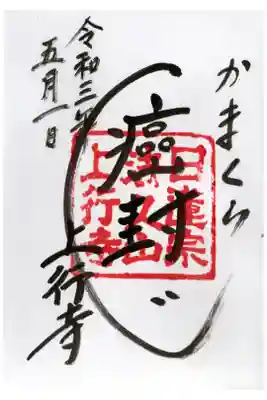 かまくら
癌封じ
上行寺
令和三年
五月一日
日蓮宗
上行寺